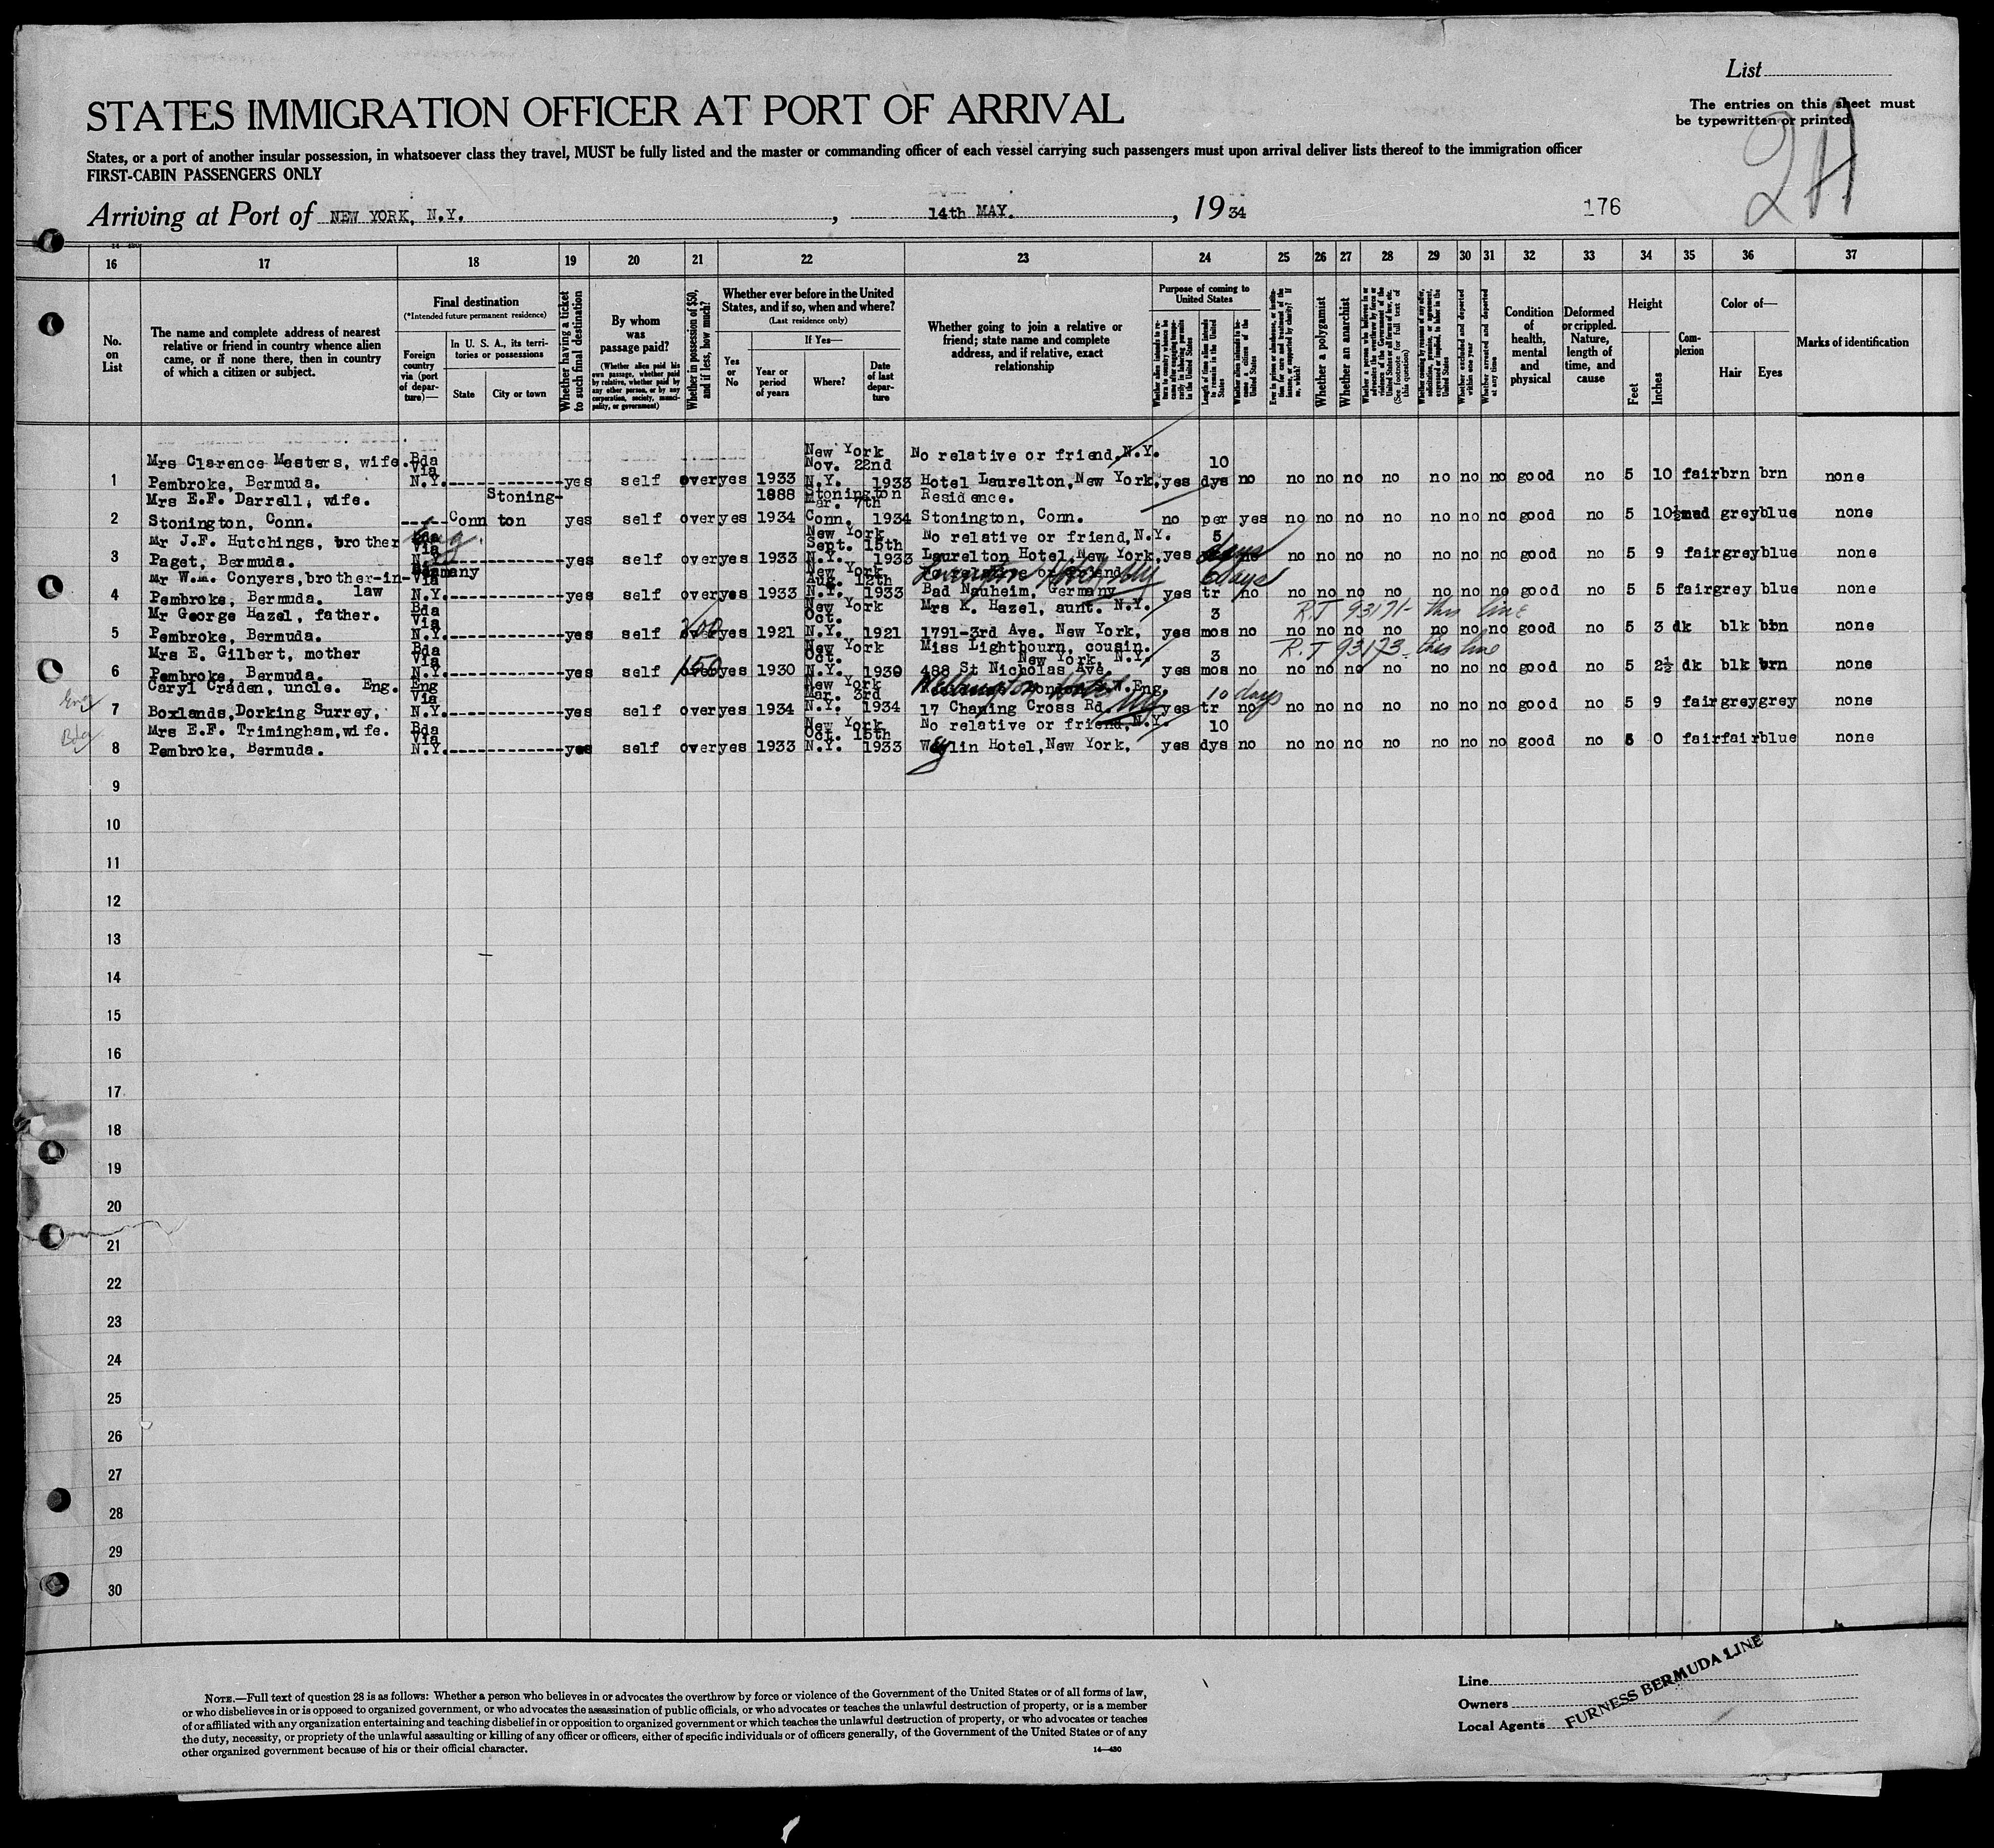 List
STATES IMMIGRATION OFFICER AT PORT OF ARRIVAL
The entries on this sheet must
be typewritten or printed
States, or a port of another insular possession, in whatsoever class they travel, MUST be fully listed and the master or commanding officer of each vessel carrying such passengers must upon arrival deliver lists thereof to the immigration officer
FIRST-CABIN PASSENGERS ONLY
Arriving at Port of NEW YORK, N.Y. , 14th MAY. , 19 34
176
16 17 18 19 20 21 22 23 24 25 26 27 28 29 30 31 32 33 34 35 36 37
No. on List
The name and complete address of nearest relative or friend in country whence alien came, or if none there, then in country of which a citizen or subject.
Final destination
(*Intended future permanent residence)
Foreign country via (port of departure)—
In U. S. A., its territories or possessions
State
City or town
Whether having a ticket to such final destination
By whom was passage paid?
(Whether alien paid his own passage, whether paid by relative, whether paid by any other person, or by any corporation, society, municipality, or government)
Whether in possession of $50, and if less, how much?
Whether ever before in the United States, and if so, when and where?
(Last residence only)
Yes or No
If Yes—
Year or period of years
Where?
Date of last departure
Whether going to join a relative or friend; state name and complete address, and if relative, exact relationship
Purpose of coming to United States
Whether alien intends to return to country whence he came after engaging temporarily in laboring pursuits in the United States
Length of time alien intends to remain in the United States
Whether alien intends to become a citizen of the United States
Whether a polygamist
Whether an anarchist
Whether excluded and deported within one year
Whether arrested and deported at any time
Condition of health, mental and physical
Deformed or crippled. Nature, length of time, and cause
Height
Feet
Inches
Complexion
Color of—
Hair
Eyes
Marks of identification
1 Mrs Clarence Masters, wife. Pembroke, Bermuda. Bda Via N.Y. yes self over yes 1933 New York N.Y. Nov. 22nd 1933 No relative or friend, N.Y. Hotel Laurelton, New York. yes 10 dys no no no no no no no no good no 5 10 fair brn brn none
2 Mrs E.F. Darrell, wife. Stonington, Conn. Conn Stonington yes self over yes 1888 1934 Stonington Conn. Mar. 7th 1934 Residence. Stonington, Conn. no per yes no no no no no no no good no 5 10½ med grey blue none
3 Mr J.F. Hutchings, brother Paget, Bermuda. Bda Via N.Y. yes self over yes 1933 New York N.Y. Sept. 15th 1933 No relative or friend, N.Y. Laurelton Hotel, New York. yes 5 days no no no no no no no no good no 5 9 fair grey blue none
4 Mr W.m. Conyers, brother-in-law Pembroke, Bermuda. Germany Via N.Y. yes self over yes 1933 New York N.Y. Aug. 12th 1933 No relative or friend Bad Nauheim, Germany yes tr 6 days no no no no no no no no good no 5 5 fair grey blue none
5 Mr George Hazel, father. Pembroke, Bermuda. Bda Via N.Y. yes self over 200 yes 1921 New York N.Y. Oct. 1921 Mrs K. Hazel, aunt. N.Y. 1791-3rd Ave. New York, yes 3 mos no R.T 93171- this line no no no no no no no good no 5 3 dk blk brn none
6 Mrs E. Gilbert, mother Pembroke, Bermuda. Bda Via N.Y. yes self over 150 yes 1930 New York N.Y. Oct. 1930 Miss Lightbourn, cousin. 488 St Nicholas Ave. New York, N.Y. yes 3 mos no R.T 93173- this line no no no no no no no good no 5 2½ dk blk brn none
Eng
7 Caryl Craden, uncle. Eng. Boxlands, Dorking Surrey, Eng Via N.Y. yes self over yes 1934 New York N.Y. Mar. 3rd 1934 Wellington Hotel NY W. Eng. 17 Chaning Cross Rd. yes tr 10 days no no no no no no no no good no 5 9 fair grey grey none
Bda
8 Mrs E.F. Trimingham, wife. Pembroke, Bermuda. Bda Via N.Y. yes self over yes 1933 New York N.Y. Oct. 15th 1933 No relative or friend, N.Y. Weylin Hotel, New York. yes 10 dys no no no no no no no no good no 5 0 fair fair blue none
9
10
11
12
13
14
15
16
17
18
19
20
21
22
23
24
25
26
27
28
29
30
NOTE.—Full text of question 28 is as follows: Whether a person who believes in or advocates the overthrow by force or violence of the Government of the United States or of all forms of law,
or who disbelieves in or is opposed to organized government, or who advocates the assassination of public officials, or who advocates or teaches the unlawful destruction of property, or is a member
of or affiliated with any organization entertaining and teaching disbelief in or opposition to organized government or which teaches the unlawful destruction of property, or who advocates or teaches
the duty, necessity, or propriety of the unlawful assaulting or killing of any officer or officers, either of specific individuals or of officers generally, of the Government of the United States or of any
other organized government because of his or their official character.
14—430
Line
Owners
Local Agents
FURNESS BERMUDA LINE